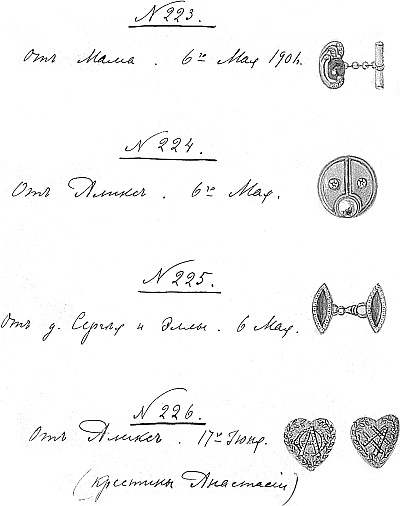 N 223.
Отъ Мама. 6го Мая 1901.
N 224.
Отъ Аликсъ. 6го Мая.
N 225.
Отъ д. Сергѣя и Эллы. 6 Мая.
N 226.
Отъ Аликсъ. 17го Іюня.
(крестины Анастасіи)